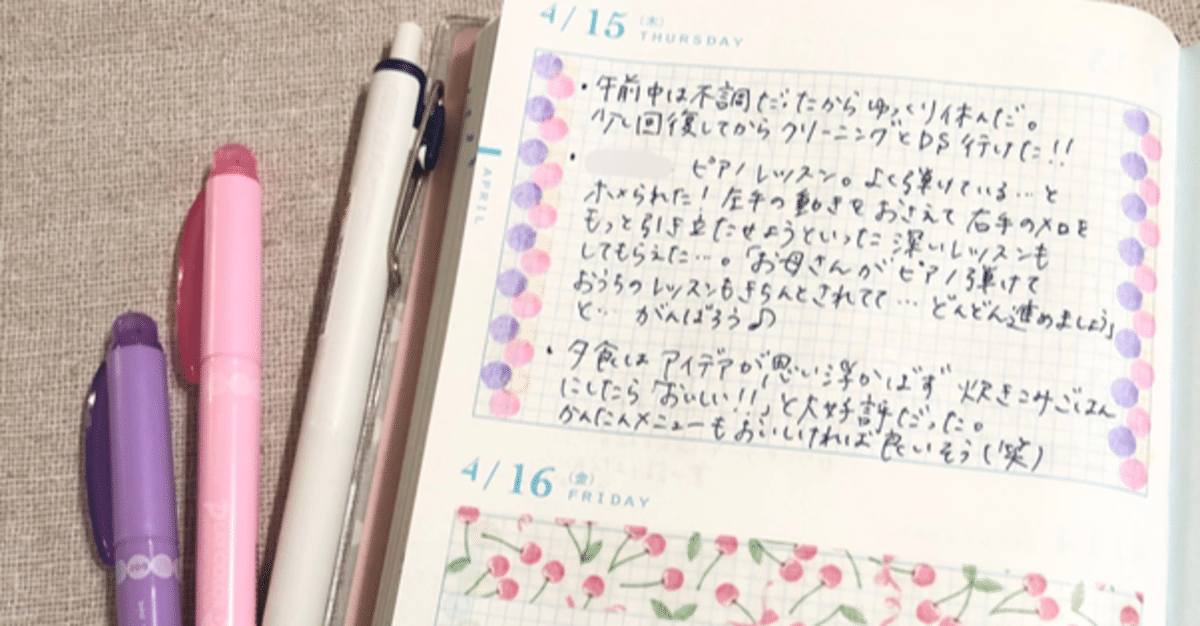 4/15 (木) THURSDAY
・午前中は不調だったからゆっくり休んだ。
少し回復してからクリーニングとDS行けた!!
・ ピアノレッスン。よく弾けている…と
ホメられた!左手の動きをおさえて右手のメロを
もっと引き立たせようといった深いレッスンも
してもらえた…。「お母さんがピアノ弾けて
おうちのレッスンもきちんとされてて…どんどん進めましょう」
と…がんばろう♪
・夕食はアイデアが思い浮かばず炊きこみごはん
にしたら「おいしい!!」と大好評だった。
かんたんメニューもおいしければ良いそう(笑)
APRIL
4/16 (金) FRIDAY